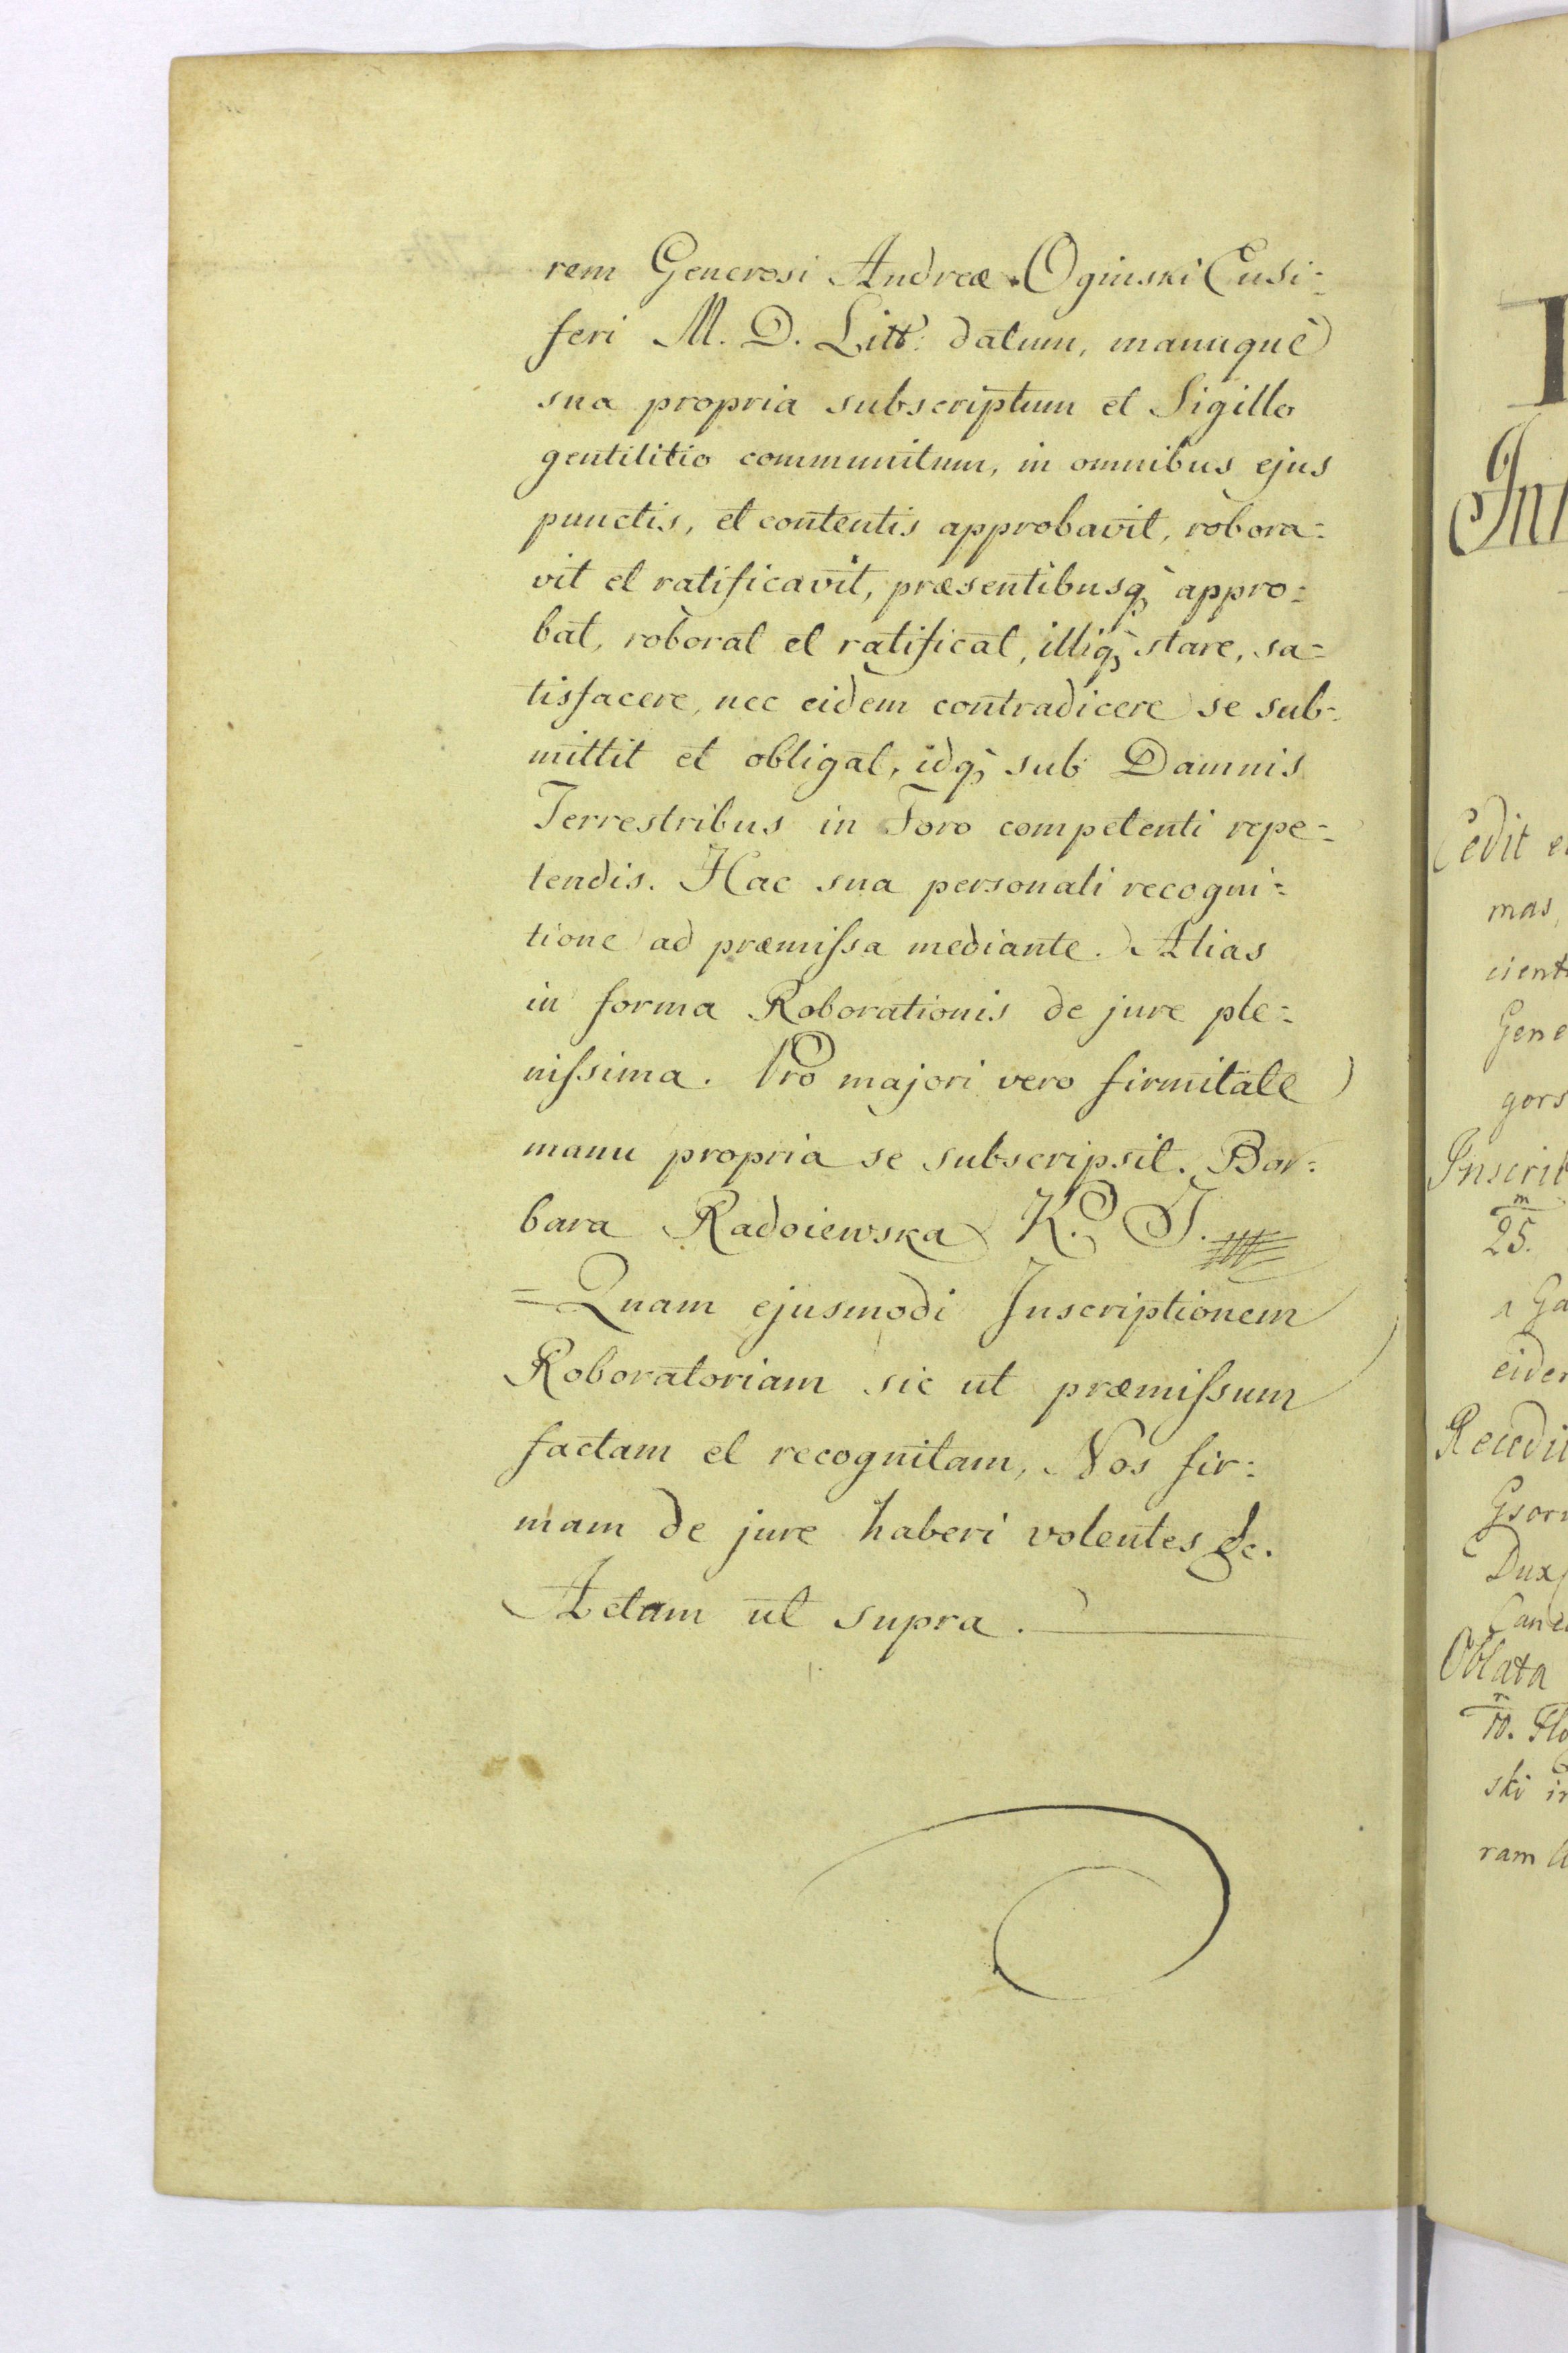 rem Generosi Andreæ Oginski Ensi=
feri M. D. Litt: datum, manuquè
sua propria subscriptum et Sigillo
gentilitio communitum, in omnibus ejus
punctis, et contentis approbavit, robora=
vit et ratificavit, præsentibusq; appro=
bat, roborat et ratificat, illiq; stare, sa=
tisfacere, nec eidem contradicere se sub=
mittit et obligat, idq; sub Damnis
Terrestribus in Foro competenti repe=
tendis. Hac sua personali recogni=
tione ad præmissa mediante. Alias
in forma Roborationis de jure ple=
nissima. Pro majori vero firmitate
manu propria se subscripsit. Bar=
bara Radoiewska K. J.
=Quam ejusmodi Inscriptionem
Roboratoriam sic ut præmissum
factam et recognitam, Nos fir=
mam de jure haberi volentes &c.
Actum ut supra.
Cedit
mas,
cient
Gene
gors
Inscrib
m
25.
a Ga
eider
Gsor
Dux
Oblata
m
10. Flo
ski in
ram